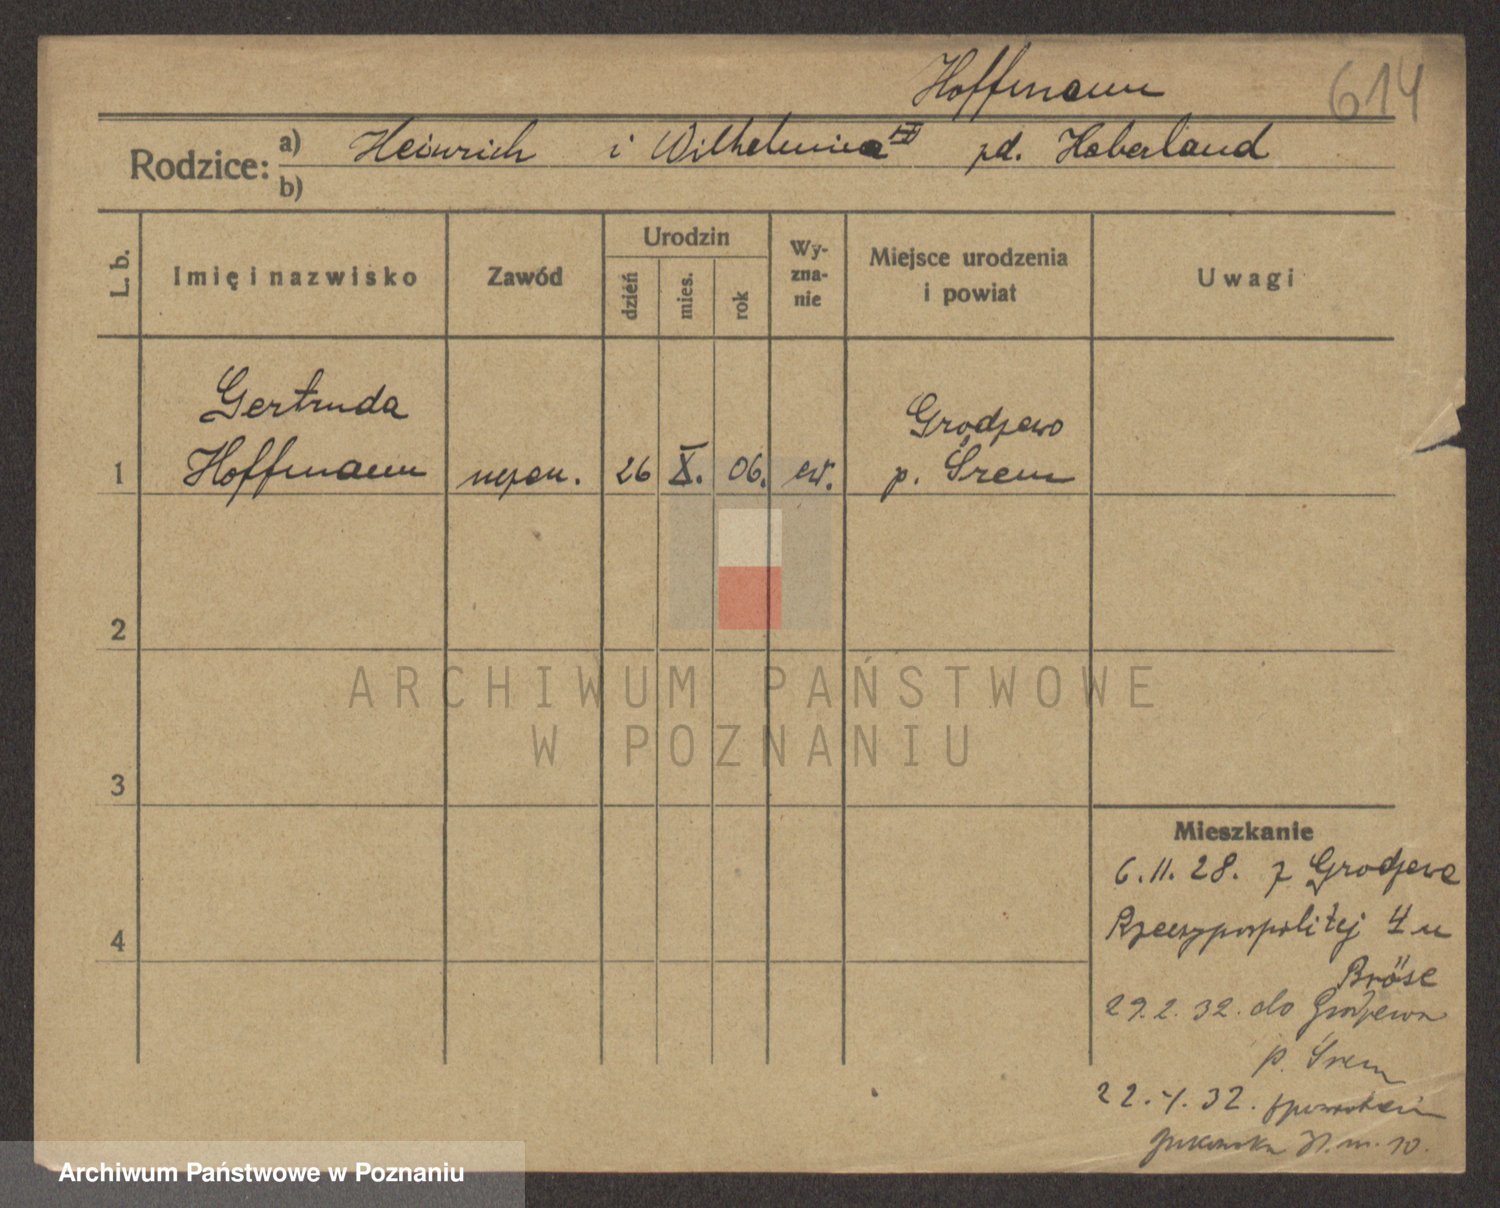 Hoffmann
614
Rodzice: a) Heinrich i Wilhelmina zd. Haberland
b)
L. b.
Imię i nazwisko
Zawód
Urodzin
dzień
mies.
rok
Wy-
zna-
nie
Miejsce urodzenia
i powiat
Uwagi
Gertruda
Hoffmann
Grodzewo
1 niezam. 26 X. 06. ew. p. Śrem
2
3
4
Mieszkanie
6.11.28. z Grodzewa
Rzeczypospolitej 4 u
Bröse
29.2.32. do Grodzewa
p. Śrem
22.4.32. spowrotem
m. 10.
ARCHIWUM PAŃSTWOWE
W POZNANIU
Archiwum Państwowe w Poznaniu